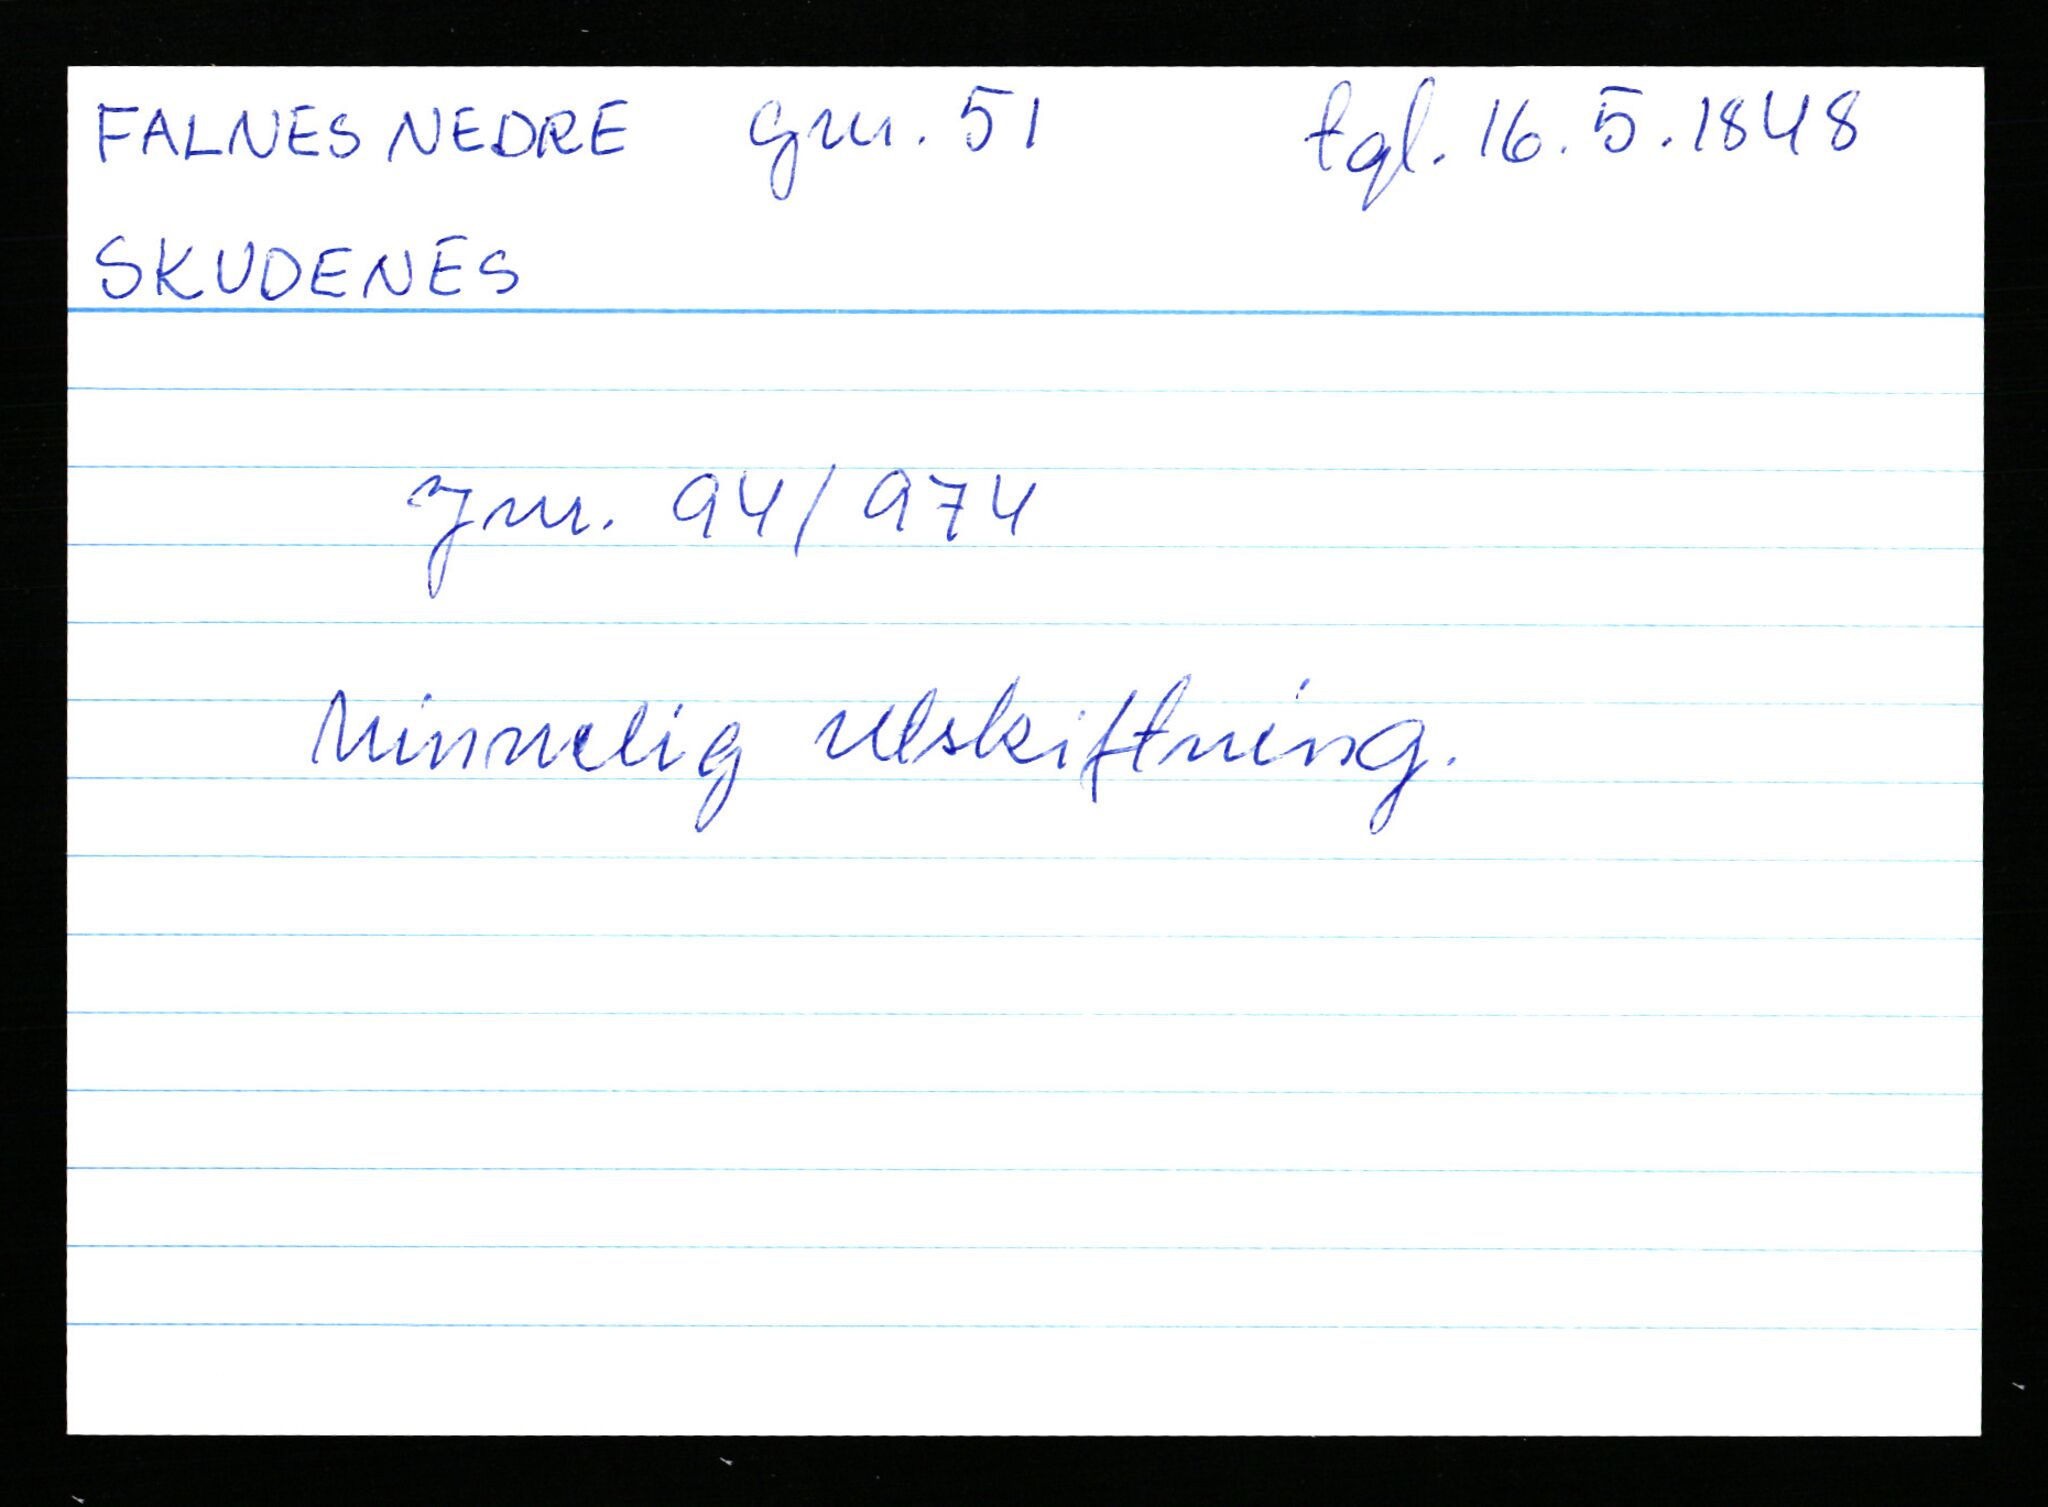 FALNES NEDRE gnr. 51 tgl. 16.5.1848
SKUDENES
Jnr. 94/974
Minnelig utskiftning.